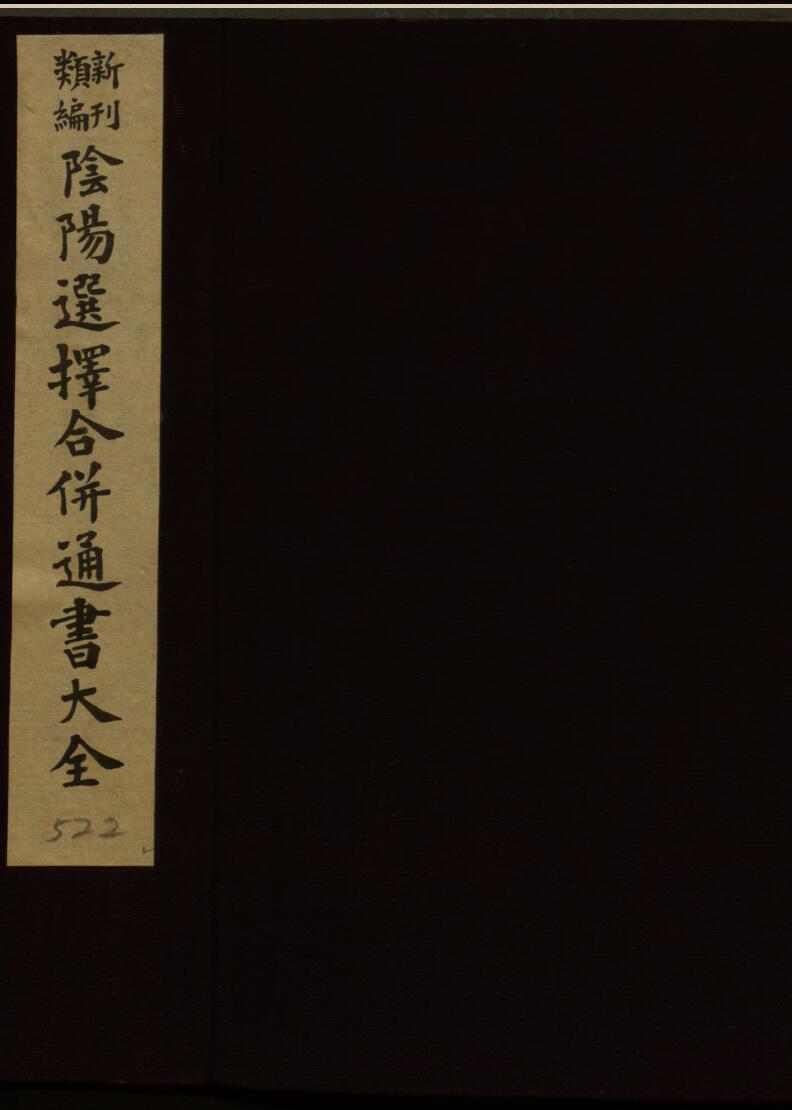 新刊
類編
陰陽選擇合併通書大全
522